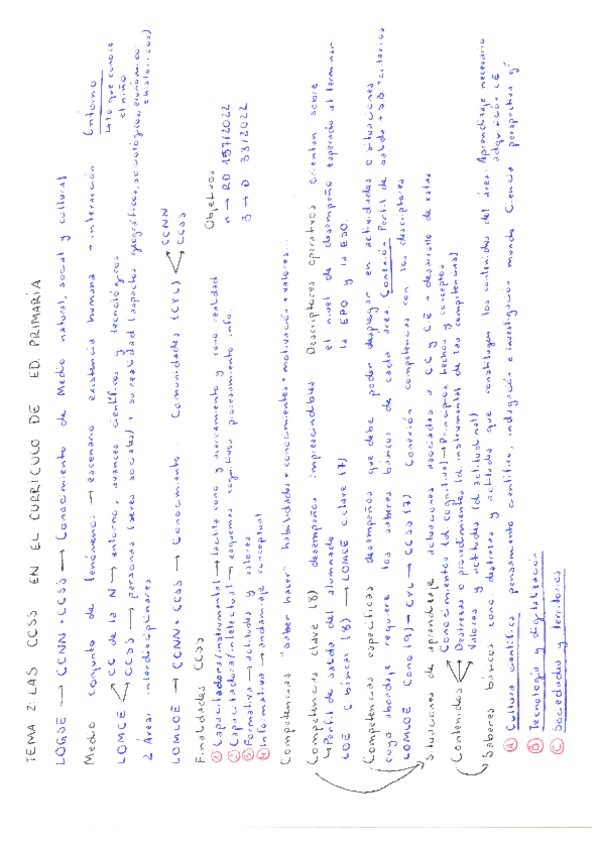 TEMA 2: LAS CCSS EN EL CURRICULO DE ED. PRIMARIA
LOGSE → CCNN + CCSS → Conocimiento de Medio natural, social y cultural
Medio conjunto de fenómenos → escenario existencia humana + interacción Entorno
LOMCE CC de la N → entorno, avances científicos y tecnológicos
lo que conoce el niño
CCSS → personas (seres sociales) + su realidad (aspectos geográficos, sociológicos, económicos e históricos)
2 Áreas interdisciplinares
LOMLOE → CCNN + CCSS → Conocimiento Comunidades (CYL) CCNN CCSS
Finalidades CCSS
① Capacitadora/instrumental → facilita cono y acercamiento y cono realidad
② Capacitadora/intelectual → esquemas cognitivos procesamiento info.
③ Formativa → actitudes y valores
④ Informativa → andamiaje conceptual
Objetivos
n → RD 157/2022
3 → D 38/2022
Competencias "saber hacer" habilidades + conocimientos + motivación + valores...
Competencias clave (8) desempeños imprescindibles Descriptores operativos orientan sobre
↳ Perfil de salida del alumnado el nivel de desempeño esperado al terminar
LOE C básicas (8) → LOMCE C.clave (7) la EPO y la ESO.
Competencias específicas desempeños que debe poder desplegar en actividades o situaciones
cuyo abordaje requiere los saberes básicos de cada área. Conexión Perfil de salida + SB + criterios
LOMLOE Cono (9) → CYL → CCSS (7) Conexión competencias con los descriptores
Situaciones de aprendizaje actuaciones asociadas a CC y CE + desarrollo de estas
Contenidos Conocimientos (d cognitiva) → Principios, hechos y conceptos
Destrezas o procedimientos (d instrumental de las competencias)
Valores y actitudes (d actitudinal)
Saberes básicos cono destrezas y actitudes que constituyen los contenidos del área. Aprendizaje necesario adquisición CE
Ⓐ Cultura científica pensamiento científico, indagación e investigación mundo Ciencia perspectiva
Ⓑ Tecnología y digitalización
Ⓒ Sociedades y territorios